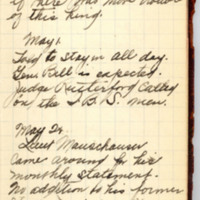 of this king.
May 1.
Told to stay in all day.
Gen. Hall is expected.
Judge Rutterford called
on the I. B. S. men.
May 2.
Lieut Mauschauser
came around for his
monthly statement.
No addition to his former